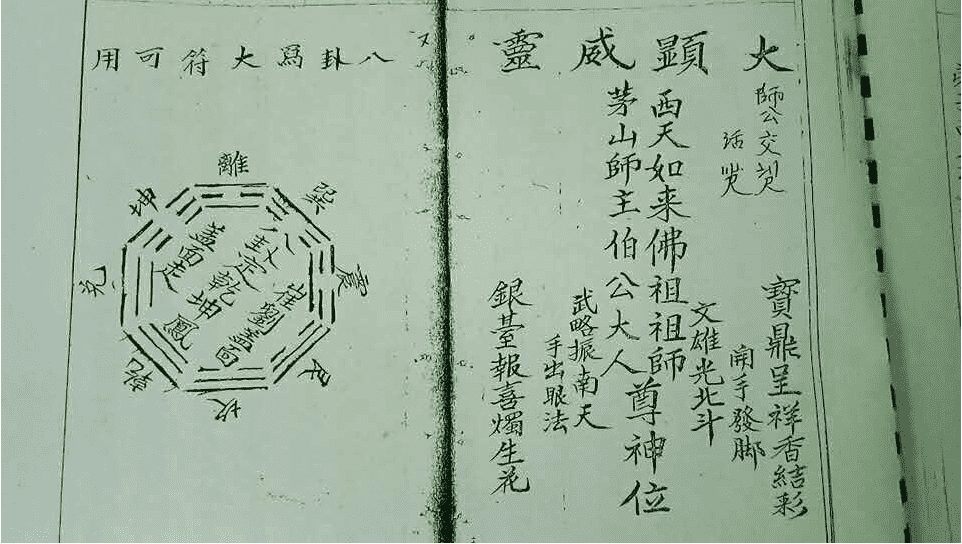 大顯威靈
師公交
寶鼎呈祥香結彩
開手發脚
文雄光北斗
西天如来佛祖祖師
茅山師主伯公大人
尊神位
武略振南天
手出眼法
銀臺報喜燭生花
八卦爲大符可用
離
巽
震
艮
坎
乾
兌
坤
崔劉蓋面
八卦定乾坤鳳
盖面走